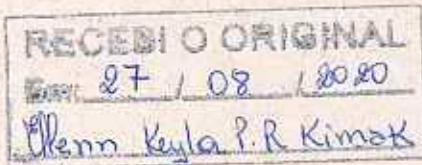 RECEBI O ORIGINAL
Em: 27 / 08 / 2020
Glenn Keyla P. R Kimak